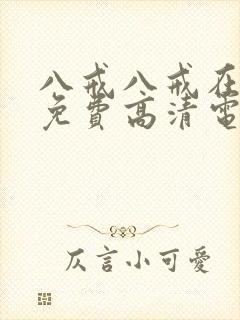 八戒八戒在
免費高清電
仄言小可愛